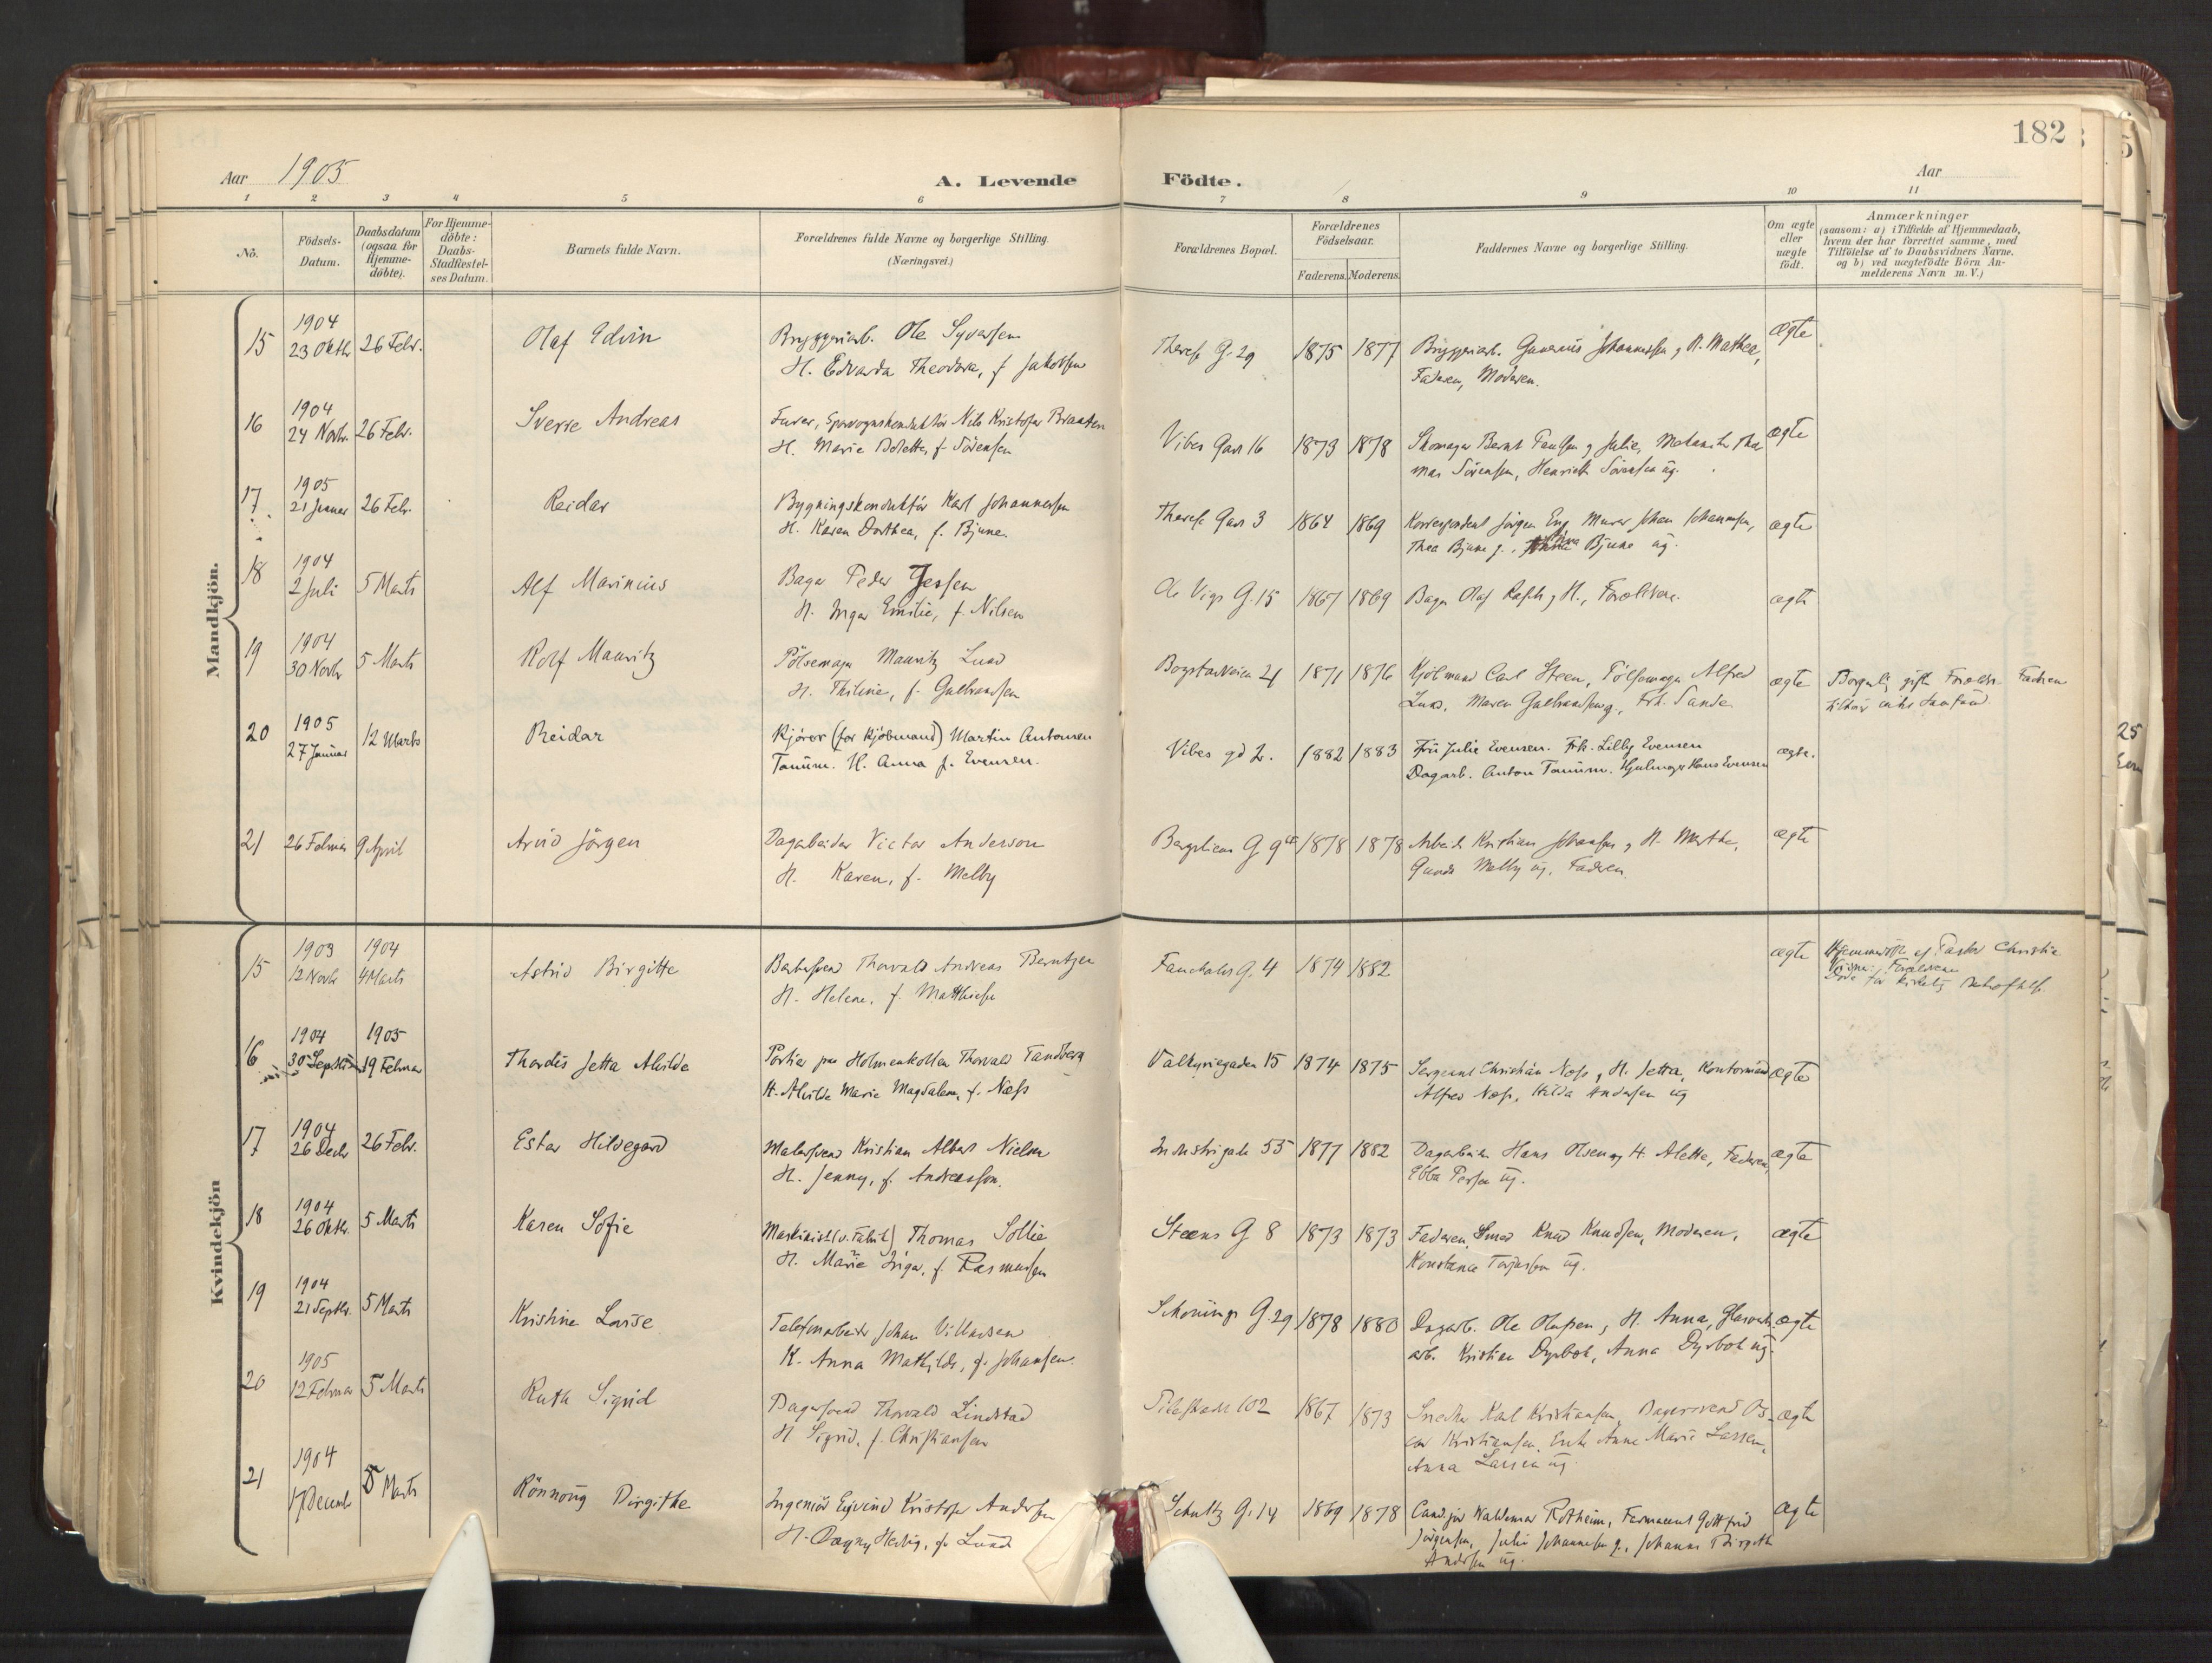 182
Aar 1905
A. Levende Födte.
Aar
1 2 3 4 5 6 7 8 9 10 11
No.
Födsels-
Datum.
Daabsdatum
(ogsaa for
Hjemme-
döbte).
For Hjemme-
döbte:
Daabs-
Stadfæstel-
ses Datum.
Barnets fulde Navn.
Forældrenes fulde Navne og borgerlige Stilling.
(Næringsvei.)
Forældrenes Bopæl.
Forældrenes
Födselsaar.
Faderens. Moderens.
Faddernes Navne og borgerlige Stilling.
Om ægte
eller
uægte
födt.
Anmærkninger
(saasom: a) i Tilfælde af Hjemmedaab,
hvem der har forrettet samme, med
Tilföielse af to Daabsvidners Navne.
og b) ved uægtefödte Börn An-
melderens Navn m. V.)
Mandkjön.
15 1904
23 Oktbr 26 Febr.
Olaf Edvin
Bryggeriarb. Ole Syversen
H. Edvarda Theodora, f. Jakobsen
Therese G. 29 1875 1877
Bryggeriarb. Johannessen g H. Mathea,
Faderen, Moderen.
ægte
16 1904
24 Novbr. 26 Febr.
Sverre Andreas
Sporvognskonduktör Nils Kristofer Braaten
H. Marie f. Sörensen
Vibes Gade 16 1873 1878
Skomager Bernt Paulsen g Julie, Mekaniker Tho
mas Sörensen, Henriette Sörensen ug.
ægte
17 1905
21 Januar 26 Febr.
Reidar
Bygningskonduktör Karl Johannessen
H. Karen Dorthea, f. Bjune.
Therese Gade 3 1864 1869
Korrespondent Jörgen Eng, Murer Johan Johannessen,
Thea Bjune g., Bjune ug.
ægte
18 1904
2 Juli 5 Marts
Alf Marinius
Bager Peder Jensen
H. Inga Emilie, f. Nilsen
Ole Vigs G. 15 1867 1869
Bager Olaf g H., Forældrene.
ægte
19 1904
30 Novbr 5 Marts
Rolf Mauritz
Pölsemager Mauritz Lund
H. Thiline, f. Gulbrandsen
Bogstadveien 21 1871 1876
Carl Steen, Pölsemager Alfred
Lund, Maren Gulbrandsen g., Frk. Sande
ægte
Borgerlig gifte Forældre. Faderen
tilhörer intet Samfund.
20 1905
27 Januar 12 Marts
Reidar
Kjörer (for Kjöbmand) Martin Antonsen
Tanum. H. Anna f. Evensen.
Vibes gd 2. 1882 1883
Fru Julie Evensen. Frk. Lilly Evensen
Dagarb. Anton Tanum. Hjulmager Hans Evensen
ægte.
21 26 Februar 9 April
Arvid Jörgen
Dagarbeider Victor Anderson
H. Karen, f. Melby
Bergslien G 9 1878 1878
Arbeider Kristian Johansen g H. Marthe,
Gunda Melby ug, Faderen.
ægte
Kvindekjön
15 1903 1904
12 Novbr 4 Marts
Astrid Birgitte
Barbersvend Thorvald Andreas Berntzen
H. Helene, f. Mathisen
Fauchalds G. 4 1874 1882
ægte
Hjemmedöbt af Pastor Christie
Vidner: Forældrene
Döde för kirkelig Bekræftelse.
16 1904 1905
30 Septbr 19 Februar
Thordis Jetta Alvilde
Portier paa Holmenkollen Thorvald Tandberg
H. Alvilde Marie Magdalene, f. Næss
Valkyriegaden 15 1874 1875
Sergeant Christian Næss g H. Jetta, Kontormand
Alfred Næss, Hilda Andersen ug
ægte
17 1904
26 Decbr 26 Febr.
Ester Hildegard
Malersvend Kristian Albert Nielsen
H. Jenny, f. Andreasson.
Industrigade 55 1877 1882
Dagarbeider Hans Olsen g H. Alette, Faderen,
Ebba Persson ug.
ægte
18 1904
26 Oktbr. 5 Marts
Karen Sofie
Maskinist (v. Fabrik) Thomas Sollie
H. Marie Inga, f. Rasmussen
Steens G 8 1873 1873
Faderen, Smed Knud Knudsen, Moderen,
Konstance Torjussen ug.
ægte
19 1904
21 Septbr. 5 Marts
Kristine Lovise
Telefonarbeider Johan Villadsen
H. Anna Mathilde, f. Johansen.
Schönings G. 29 1878 1880
Dagarb. Ole Olafsen g H. Anna, Glasverk-
arb. Kristian Dyrbok, Anna Dyrbok ug.
ægte
20 1905
12 Februar 5 Marts
Ruth Sigrid
Bagersvend Thorvald Lindstad
H. Sigrid, f. Christiansen
Pilestrædet 102 1867 1873
Snedker Karl Kristiansen, Bagersvend Os-
car Kristiansen, Enke Anne Marie Larsen,
Anna Larsen ug.
ægte
21 1904
17 Decembr 5 Marts
Rönnoug Birgithe
Ingeniör Eyvind Kristofer Andersen
H. Dagny Hedvig, f. Lund
Schultz G. 14 1869 1878
Cand. jur Waldemar Rotheim, Farmaceut Gottfrid
Jörgensen, Julie Johannesen g., Johanne Birgitte
Andersen ug.
ægte